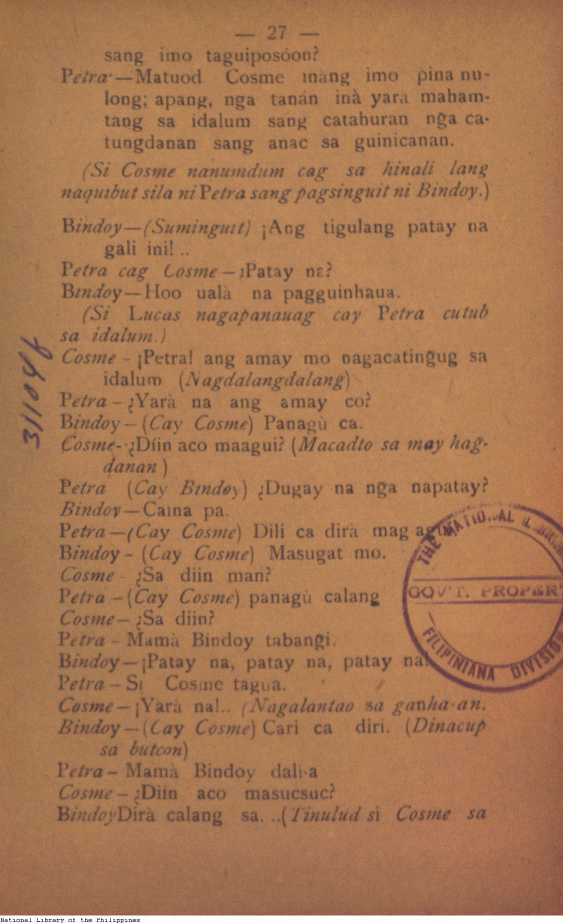 — 27 —
sang imo taguiposóon?
Petra—Matuod Cosme inang imo pina nu-
long; apang, nga tanán inà yara maham-
tang sa idalum sang catahuran nĝa ca-
tungdanan sang anac sa guinicanan.
(Si Cosme nanumdum cag sa hinali lang
naquibut sila ni Petra sang pagsinguit ni Bindoy.)
Bindoy—(Suminguit) ¡Ang tigulang patay na
gali ini!..
Petra cag Cosme—¡Patay na?
Bindoy—Hoo ualà na pagguinhaua.
(Si Lucas nagapanauag cay Petra cutub
sa idalum.)
Cosme - ¡Petra! ang amay mo nagacatinĝug sa
idalum (Nagdalangdalang)
Petra - ¿Yarà na ang amay co?
Bindoy - (Cay Cosme) Panagù ca.
Cosme- ¿Díin aco maagui? (Macadto sa may hag-
danan)
Petra (Cay Bindoy) ¿Dugay na nĝa napatay?
Bindoy—Caina pa.
Petra—(Cay Cosme) Dili ca dirà mag
Bindoy - (Cay Cosme) Masugat mo.
Cosme - ¿Sa diin man?
Petra - (Cay Cosme) panagù calang
Cosme— ¿Sa diin?
Petra - Mamà Bindoy tabangi.
Bindoy—¡Patay na, patay na, patay na
Petra - Si Cosme tagua.
Cosme—¡Yarà na!.. (Nagalantao sa ganha-an.
Bindoy—(Cay Cosme) Cari ca diri. (Dinacup
sa butcon)
Petra - Mamà Bindoy
Cosme - ¿Díin aco masucsuc?
Bindoy Dirà calang sa. ..(Tinulud si Cosme sa
31104
THE NATIONAL
GOV'T. PROPERT
FILIPINIANA DIVISIO
National Library of the Philippines